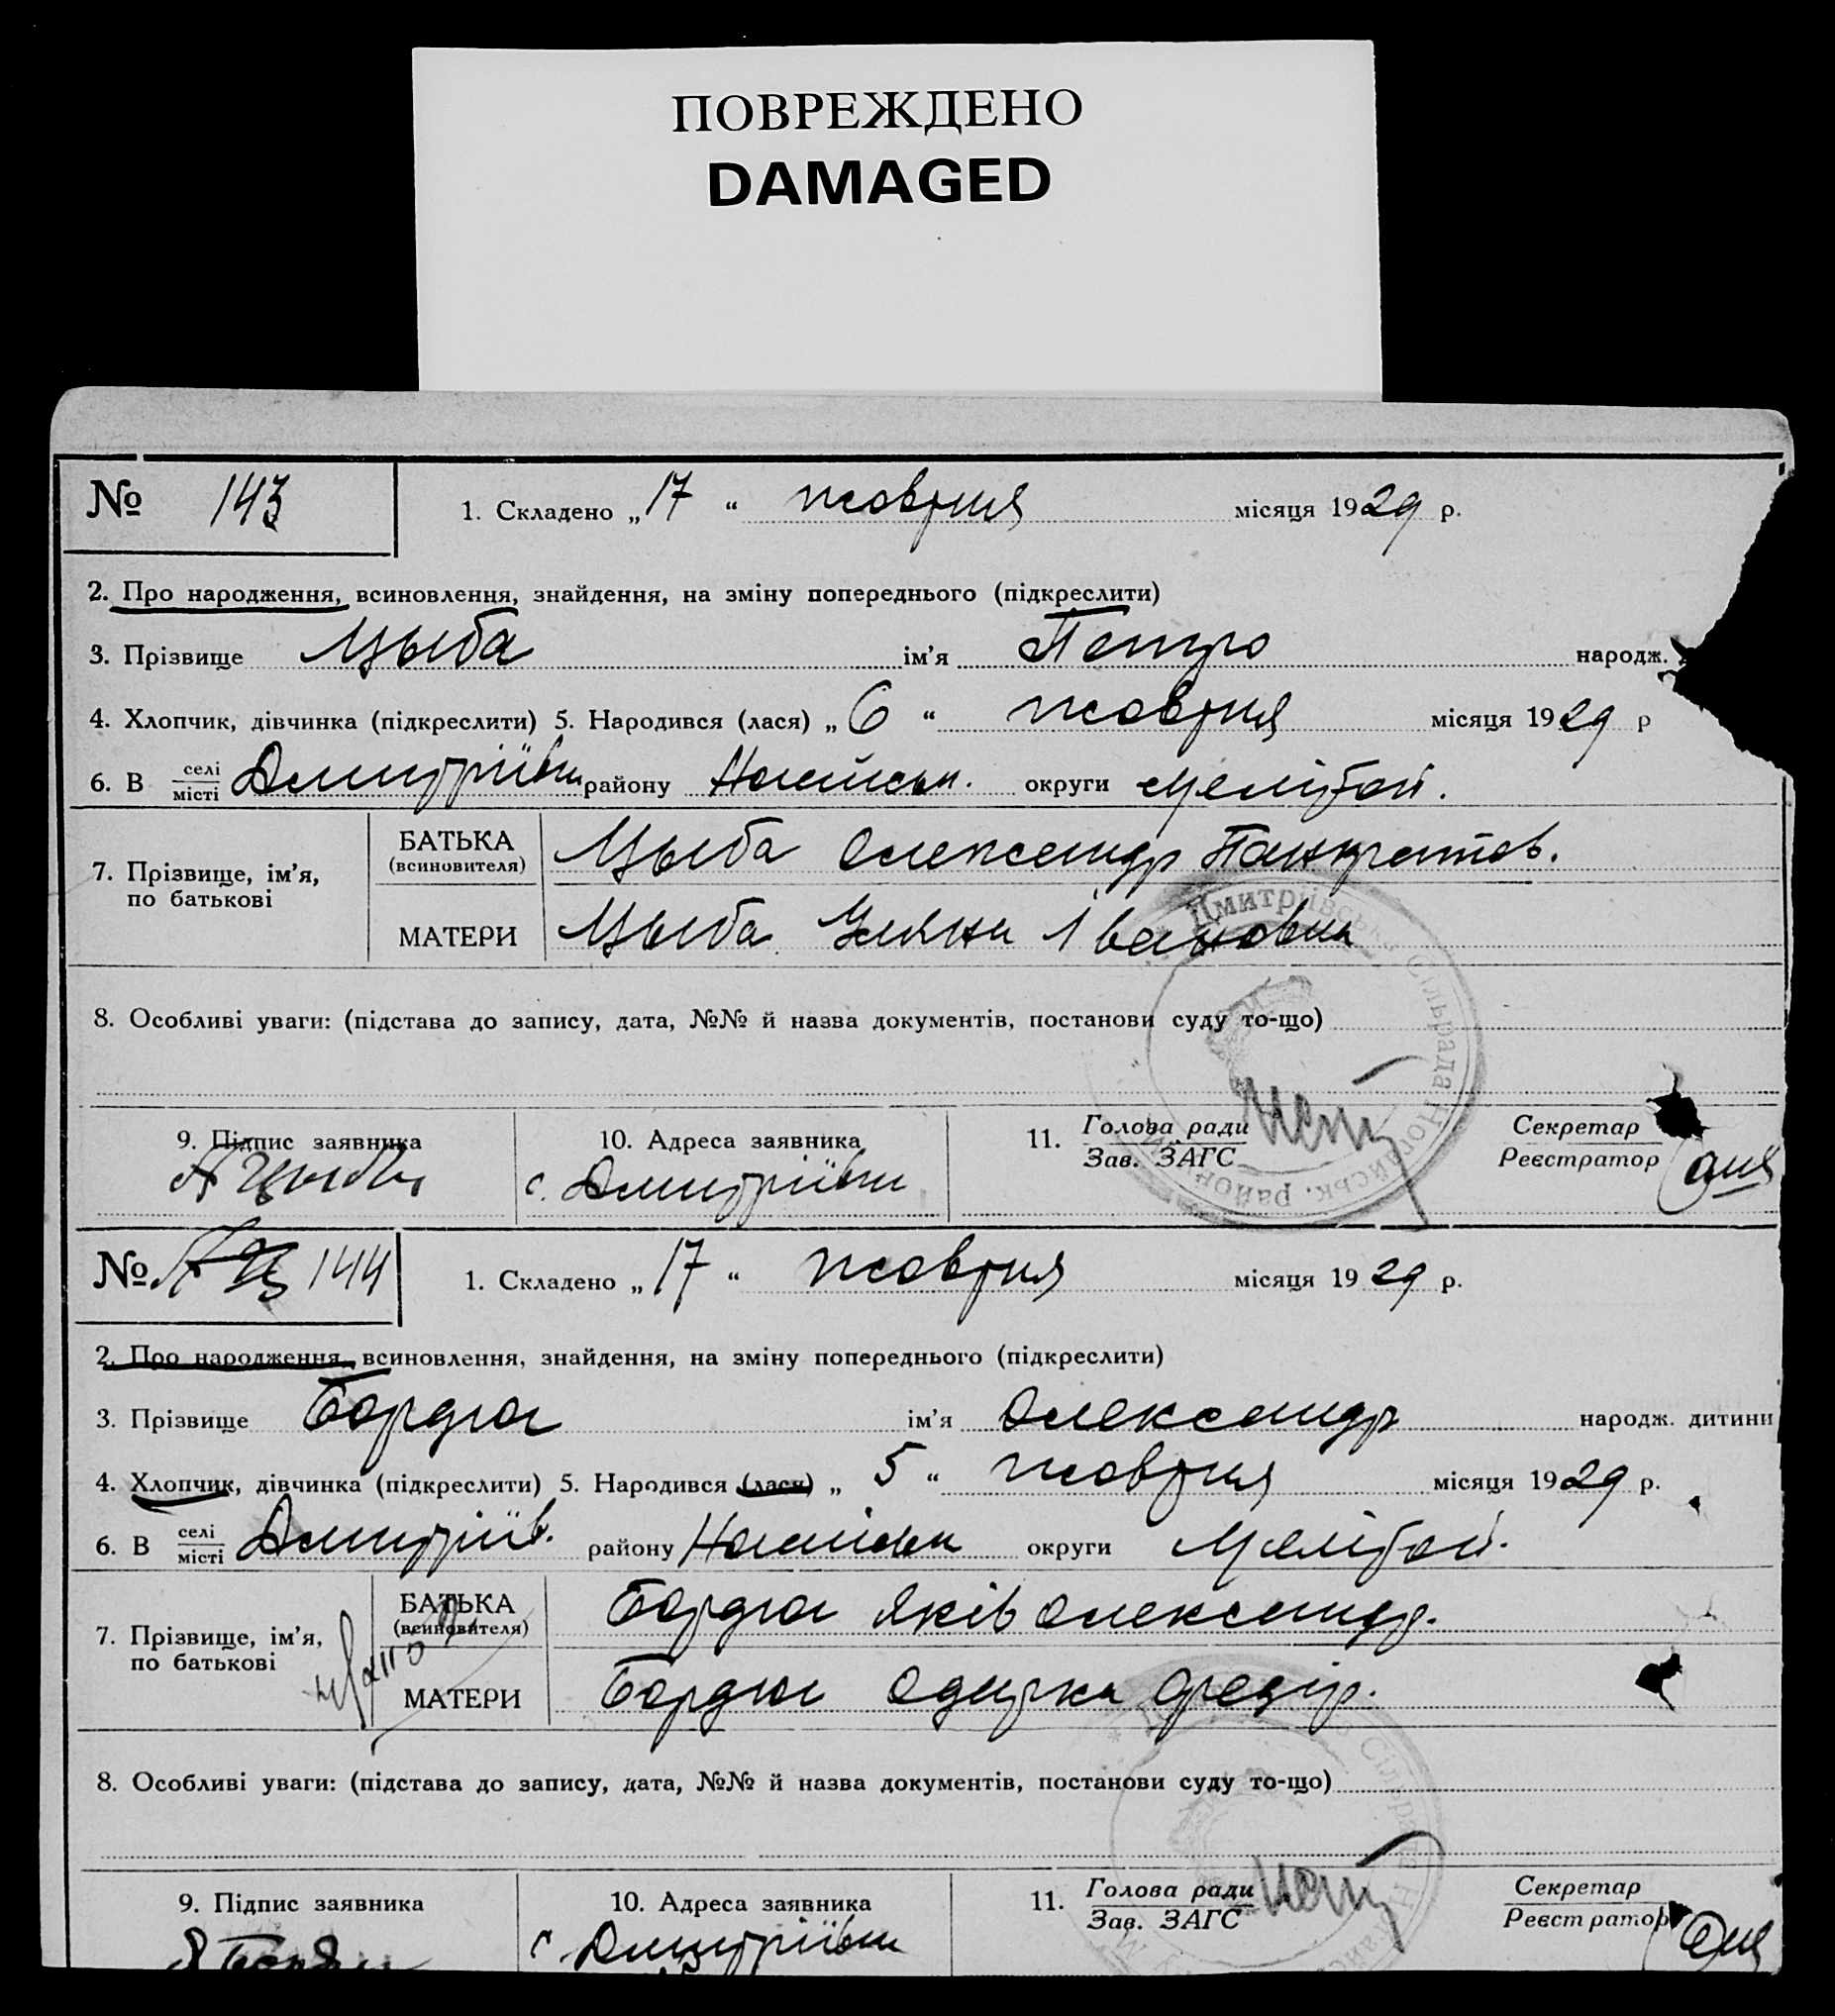 ПОВРЕЖДЕНО
DAMAGED
№ 143 1. Складено „17“ жовтня місяця 1929 р.
2. Про народження, всиновлення, знайдення, на зміну попереднього (підкреслити)
3. Прізвище Цыба ім’я Петро народж.
4. Хлопчик, дівчинка (підкреслити) 5. Народився (лася) „6“ жовтня місяця 1929 р
6. В селі місті Дмитріївки району округи Мелітоп.
7. Прізвище, ім’я, по батькові
БАТЬКА (всиновителя) Цыба Олександр Панкратов.
МАТЕРИ Цыба Уляна Івановна
Дмитріівська Сільрада Ногайськ. район
8. Особливі уваги: (підстава до запису, дата, №№ й назва документів, постанови суду то-що)
9. Підпис заявника 10. Адреса заявника 11. Голова ради Зав. ЗАГС Секретар Реєстратор
А Цыба с. Дмитріївки
№ 144 1. Складено „17“ жовтня місяця 1929 р.
2. Про народження, всиновлення, знайдення, на зміну попереднього (підкреслити)
3. Прізвище Бордюг ім’я Олександр народж. дитини
4. Хлопчик, дівчинка (підкреслити) 5. Народився (лася) „5“ жовтня місяця 1929 р.
6. В селі місті Дмитріїв. району округи Мелітоп.
7. Прізвище, ім’я, по батькові
БАТЬКА (всиновителя) Бордюг Яків Олександр.
МАТЕРИ Бордюг
8. Особливі уваги: (підстава до запису, дата, №№ й назва документів, постанови суду то-що)
9. Підпис заявника 10. Адреса заявника 11. Голова ради Зав. ЗАГС Секретар Реєстратор
с Дмитріївки